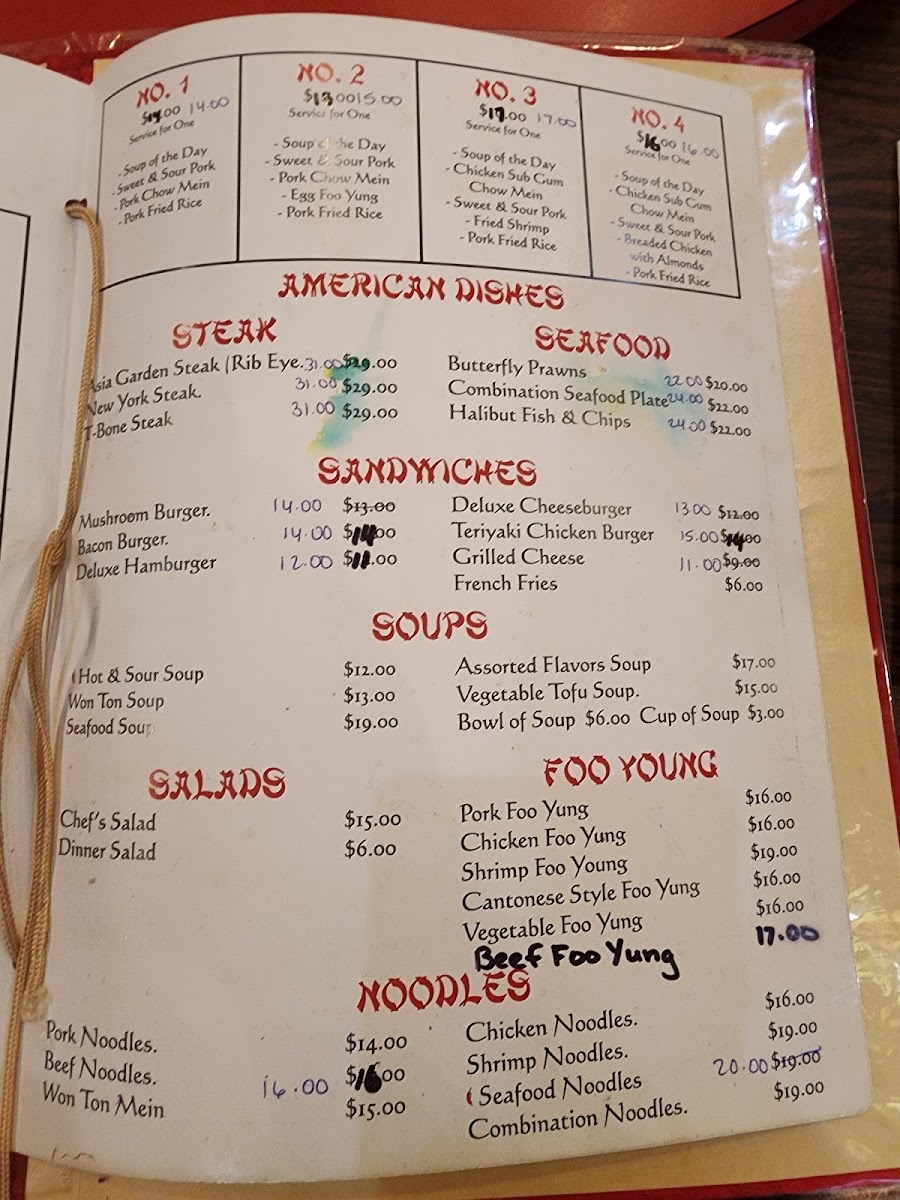 NO. 1
$14.00 14.00
Service for One
- Soup of the Day
- Sweet & Sour Pork
- Pork Chow Mein
- Pork Fried Rice
NO. 2
$13.00 15.00
Service for One
- Soup of the Day
- Sweet & Sour Pork
- Pork Chow Mein
- Egg Foo Yung
- Pork Fried Rice
NO. 3
$17.00 17.00
Service for One
- Soup of the Day
- Chicken Sub Gum
Chow Mein
- Sweet & Sour Pork
- Fried Shrimp
- Pork Fried Rice
NO. 4
$16.00 16.00
Service for One
- Soup of the Day
- Chicken Sub Gum
Chow Mein
- Sweet & Sour Pork
- Breaded Chicken
with Almonds
- Pork Fried Rice
AMERICAN DISHES
STEAK
Asia Garden Steak (Rib Eye. 31.00 $29.00
New York Steak. 31.00 $29.00
T-Bone Steak 31.00 $29.00
SEAFOOD
Butterfly Prawns 22.00 $20.00
Combination Seafood Plate 24.00 $22.00
Halibut Fish & Chips 24.00 $22.00
SANDWICHES
Mushroom Burger. 14.00 $13.00
Bacon Burger. 14.00 $14.00
Deluxe Hamburger 12.00 $11.00
Deluxe Cheeseburger 13.00 $12.00
Teriyaki Chicken Burger 15.00 $14.00
Grilled Cheese 11.00 $9.00
French Fries $6.00
SOUPS
Hot & Sour Soup $12.00
Won Ton Soup $13.00
Seafood Soup $19.00
Assorted Flavors Soup $17.00
Vegetable Tofu Soup. $15.00
Bowl of Soup $6.00 Cup of Soup $3.00
SALADS
Chef's Salad $15.00
Dinner Salad $6.00
FOO YOUNG
Pork Foo Yung $16.00
Chicken Foo Yung $16.00
Shrimp Foo Young $19.00
Cantonese Style Foo Yung $16.00
Vegetable Foo Yung $16.00
Beef Foo Yung 17.00
NOODLES
Pork Noodles. $14.00
Beef Noodles. 16.00 $16.00
Won Ton Mein $15.00
Chicken Noodles. $16.00
Shrimp Noodles. $19.00
Seafood Noodles 20.00 $19.00
Combination Noodles. $19.00